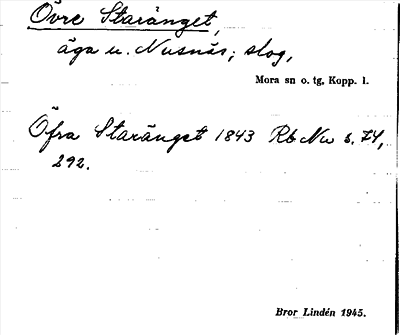 Övre Staränget,
äga u. Nusnäs; slog,
Mora sn o. tg, Kopp. l.
Öfra Staränget 1843 Rb Nu s. 74,
292.
Bror Lindén 1945.